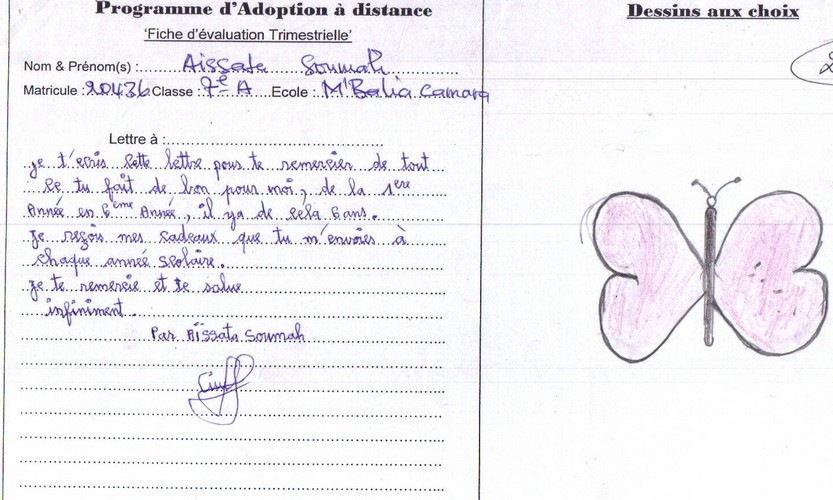 Programme d'Adoption à distance
'Fiche d'évaluation Trimestrielle'
Nom & Prénom(s) : Aissata Soumah
Matricule : 20436 Classe : 7e A Ecole : M'Balia Camara
Lettre à :
je t'ecris cette lettre pour te remercier de tout
ce tu fait de bon pour moi, de la 1ere
Année en 6ème Année, il ya de cela 6 ans.
Je reçois mes cadeaux que tu m'envoies à
chaque année scolaire.
je te remercie et te salue
infiniment.
Par Aïssata Soumah
Dessins aux choix